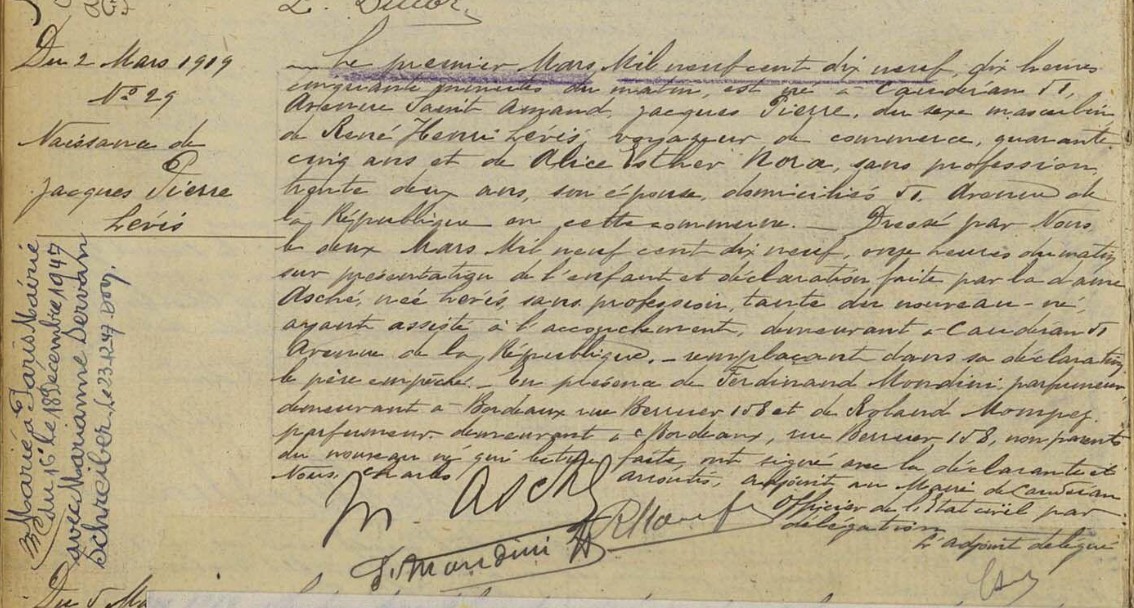 Du 2 Mars 1919
N° 29
Naissance de
Jacques Pierre
Lévis
Marié à Paris Mairie
du 16e le 18 Décembre 1947
avec Marianne Servan
Schreiber. Le 23.12.47
Le premier Mars Mil neuf cent dix neuf, dix heures
cinquante minutes du matin, est né à Caudéran 51,
Avenue Saint Amand, Jacques Pierre, du sexe masculin,
de René Henri Lévis voyageur de commerce, quarante
cinq ans et de Alice Esther Nora, sans profession,
trente deux ans, son épouse, domiciliés 51 Avenue de
la République en cette commune. _ Dressé par Nous
le deux Mars Mil neuf cent dix neuf, onze heures du matin
sur présentation de l'enfant et déclaration faite par la dame
Asché, née Lévis, sans profession, tante du nouveau-né,
ayant assisté à l'accouchement, demeurant à Caudéran 51
Avenue de la République. _ remplaçant dans sa déclaration
le père empêché. _ En présence de Ferdinand Mondini, parfumeur,
demeurant à Bordeaux rue Berruer 158 et de Roland Mompez
parfumeur demeurant à Bordeaux, rue Berruer 158, non parents
du nouveau né qui lecture faite, ont signé avec la déclarante et
Nous, Charles adjoint au Maire de Caudéran
Officier de l'Etat civil par
délégation
L'adjoint délégué
M. Asché
F. Mondini
Du 5 Ma